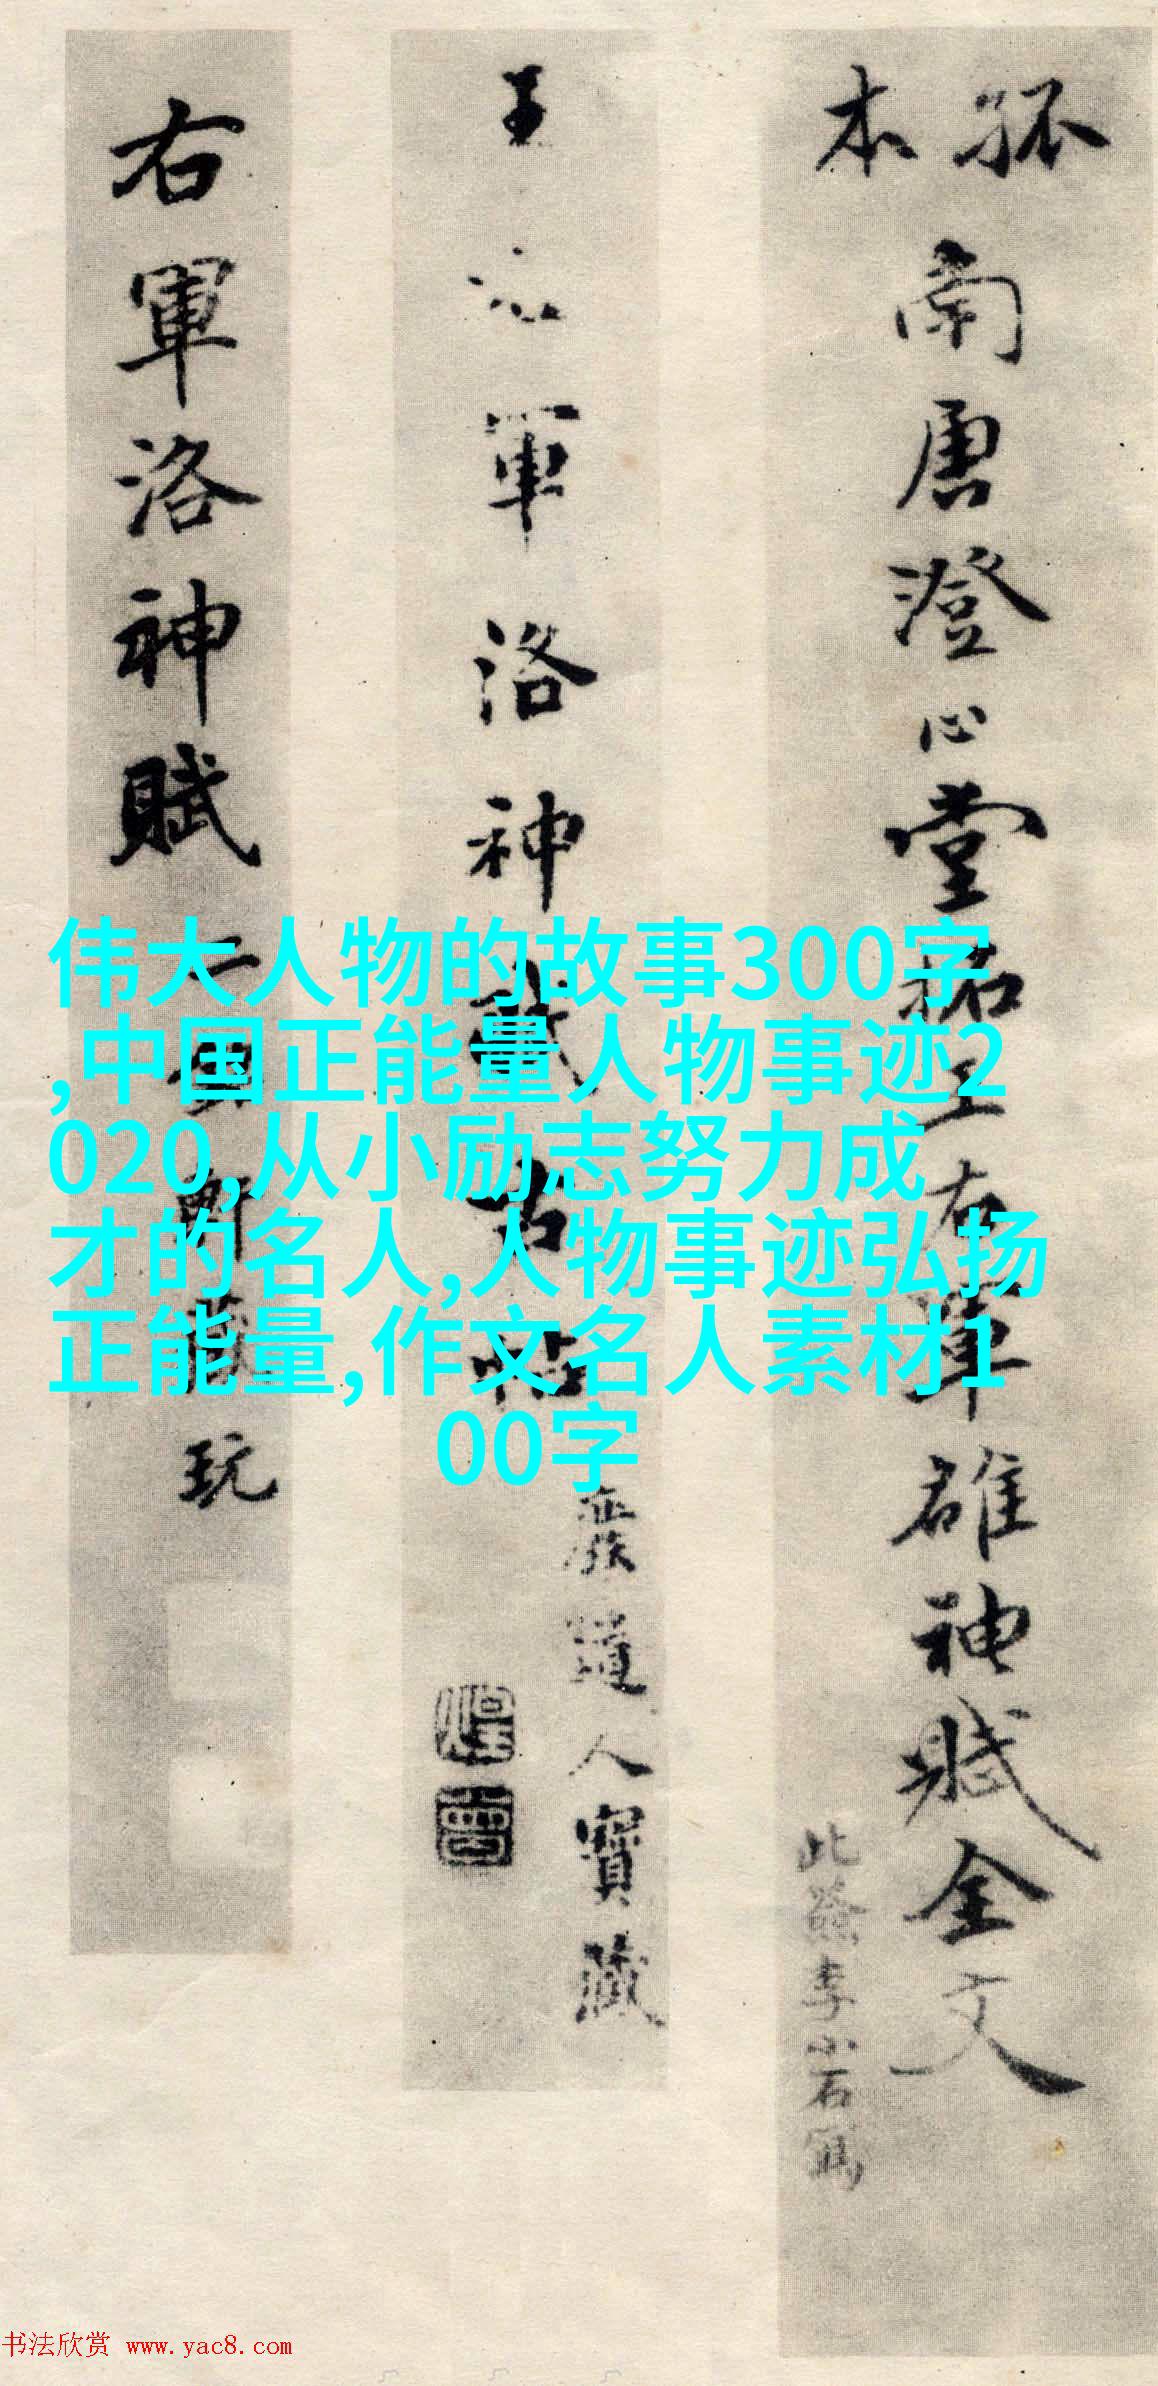 孤本
南唐澄心堂拓王右軍雒神賦全文
此簽李小石寫
軍洛神
古帖
道人寶藏
右軍洛神賦
玩
伟大人物的故事300字
,中国正能量人物事迹2
020,从小励志努力成
才的名人,人物事迹弘扬
正能量,作文名人素材1
00字
书法欣赏 www.yac8.com